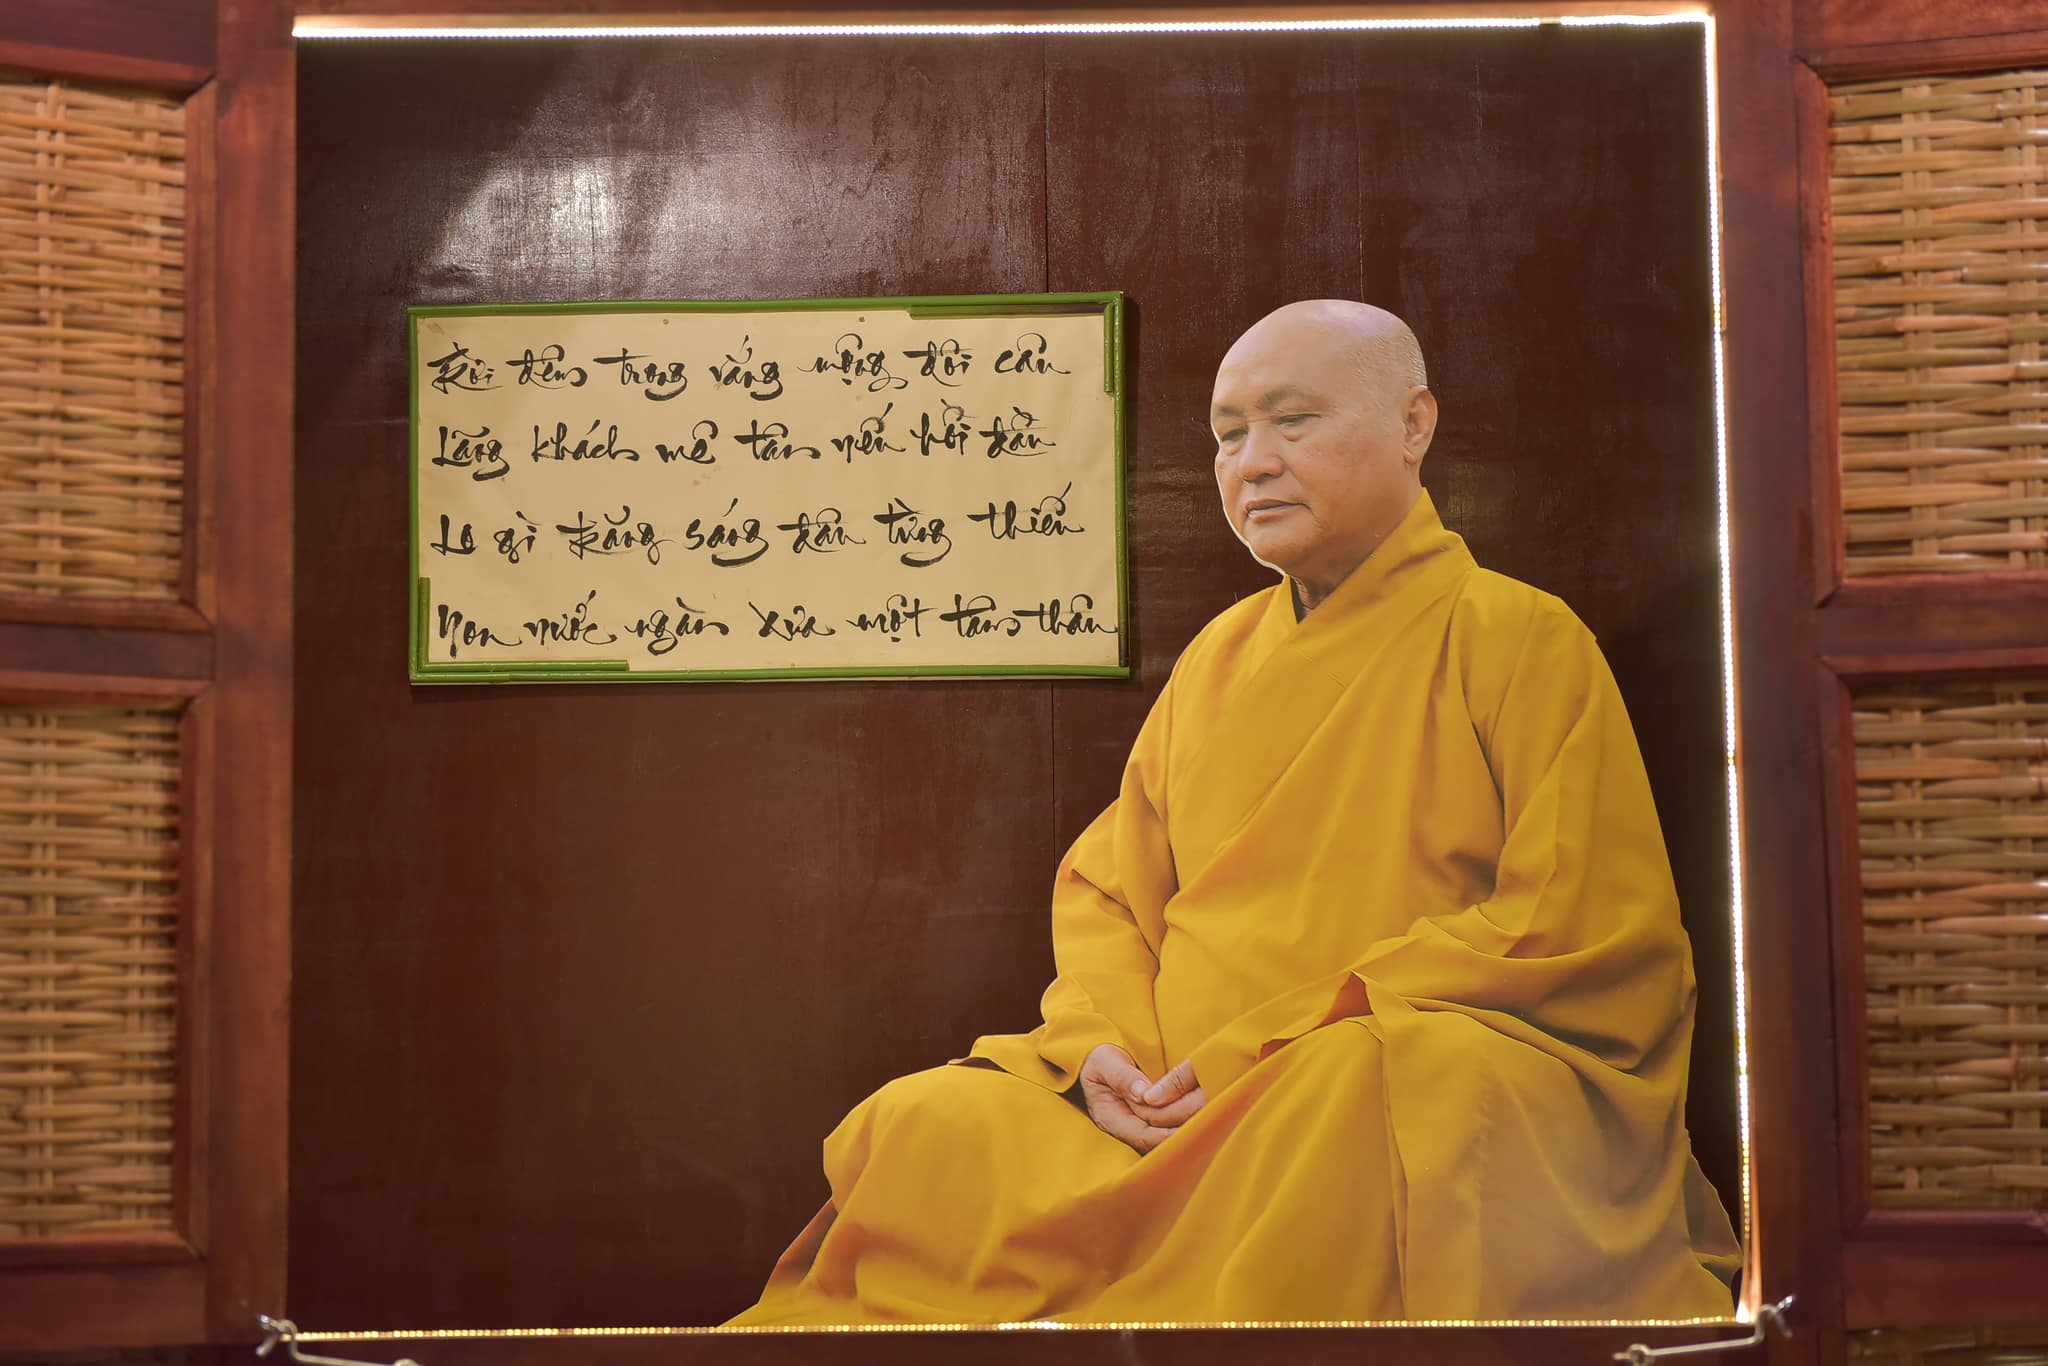 Rồi đêm trong vắng mộng đôi cần
Lãng khách mê tân nến hồi dần
Lo gì trăng sáng dần từng thiến
Non nước ngàn xưa một tâm thân